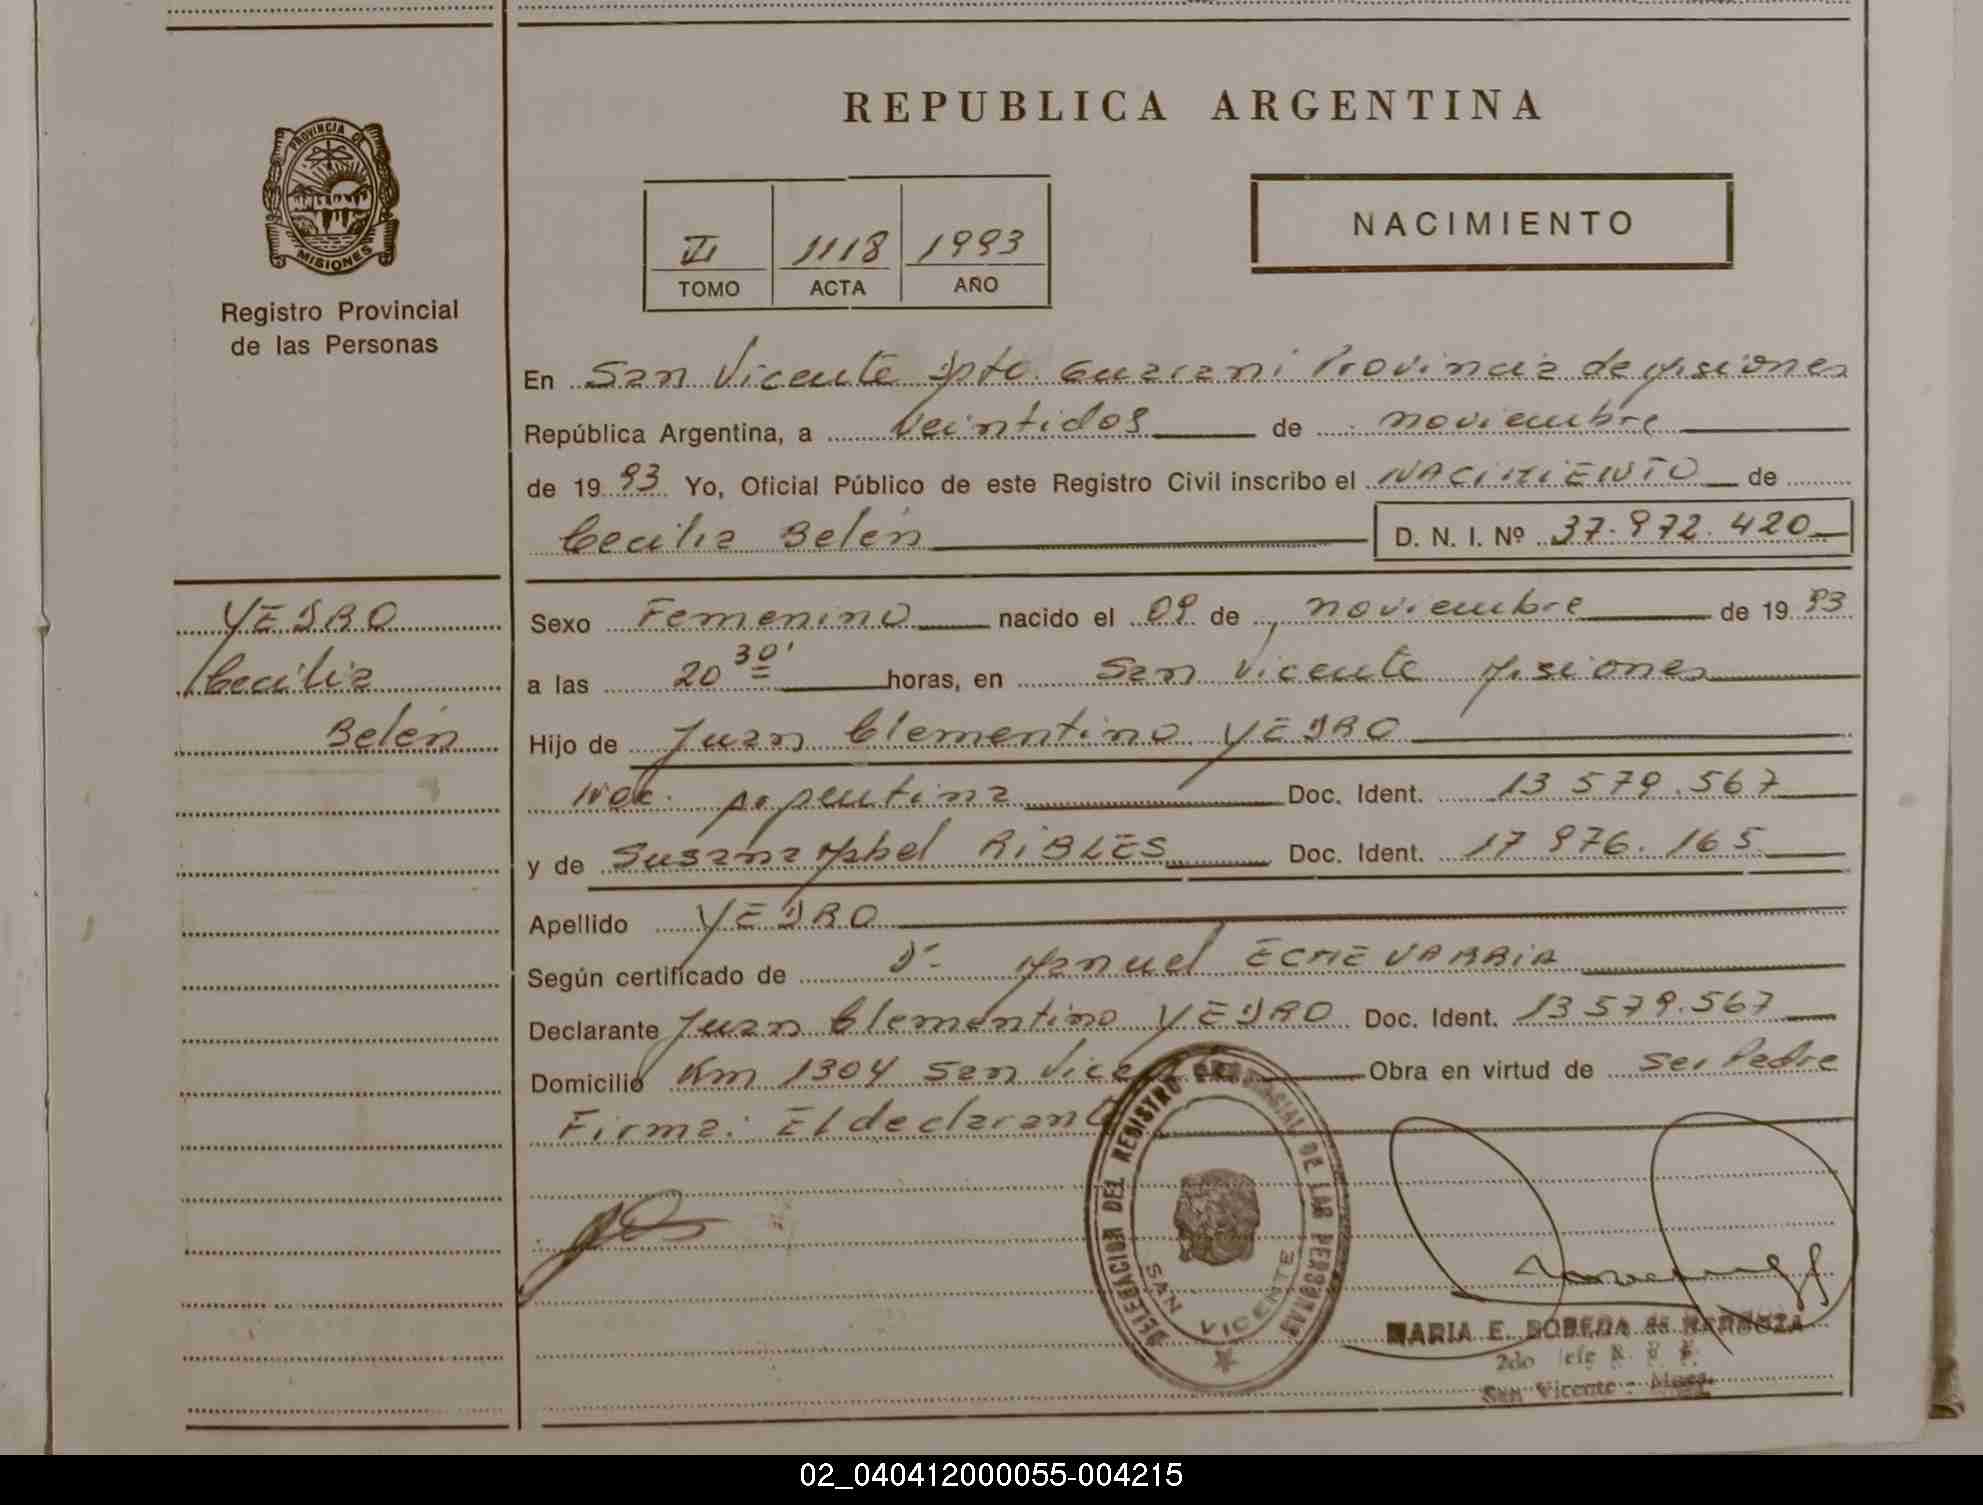 REPUBLICA ARGENTINA
PROVINCIA DE
MISIONES
Registro Provincial
de las Personas
VI 1118 1993
TOMO ACTA AÑO
NACIMIENTO
En San Vicente Dpto. Guarani Provincia de Misiones
República Argentina, a veintidos de noviembre
de 1993 Yo, Oficial Público de este Registro Civil inscribo el NACIMIENTO de
Cecilia Belén D. N. I. Nº 37.972.420
YEDRO
Cecilia
Belén
Sexo Femenino nacido el 09 de noviembre de 1993
a las 20 30' horas, en San Vicente Misiones
Hijo de Juan Clementino YEDRO
Nac. Argentina Doc. Ident. 13 579.567
y de Susana Mabel RIBLES Doc. Ident. 17 976.165
Apellido YEDRO
Según certificado de Dr. Manuel ECHEVARRIA
Declarante Juan Clementino YEDRO Doc. Ident. 13 579.567
Domicilio Km 1304 San Vice Obra en virtud de Ser Padre
Firma: El declarant
DELEGACION DEL REGISTRO PROVINCIAL DE LAS PERSONAS
SAN VICENTE
MARIA E. BOBEDA de MENDOZA
2do Jefe R. P.
San Vicente - Mnes.
02_040412000055-004215